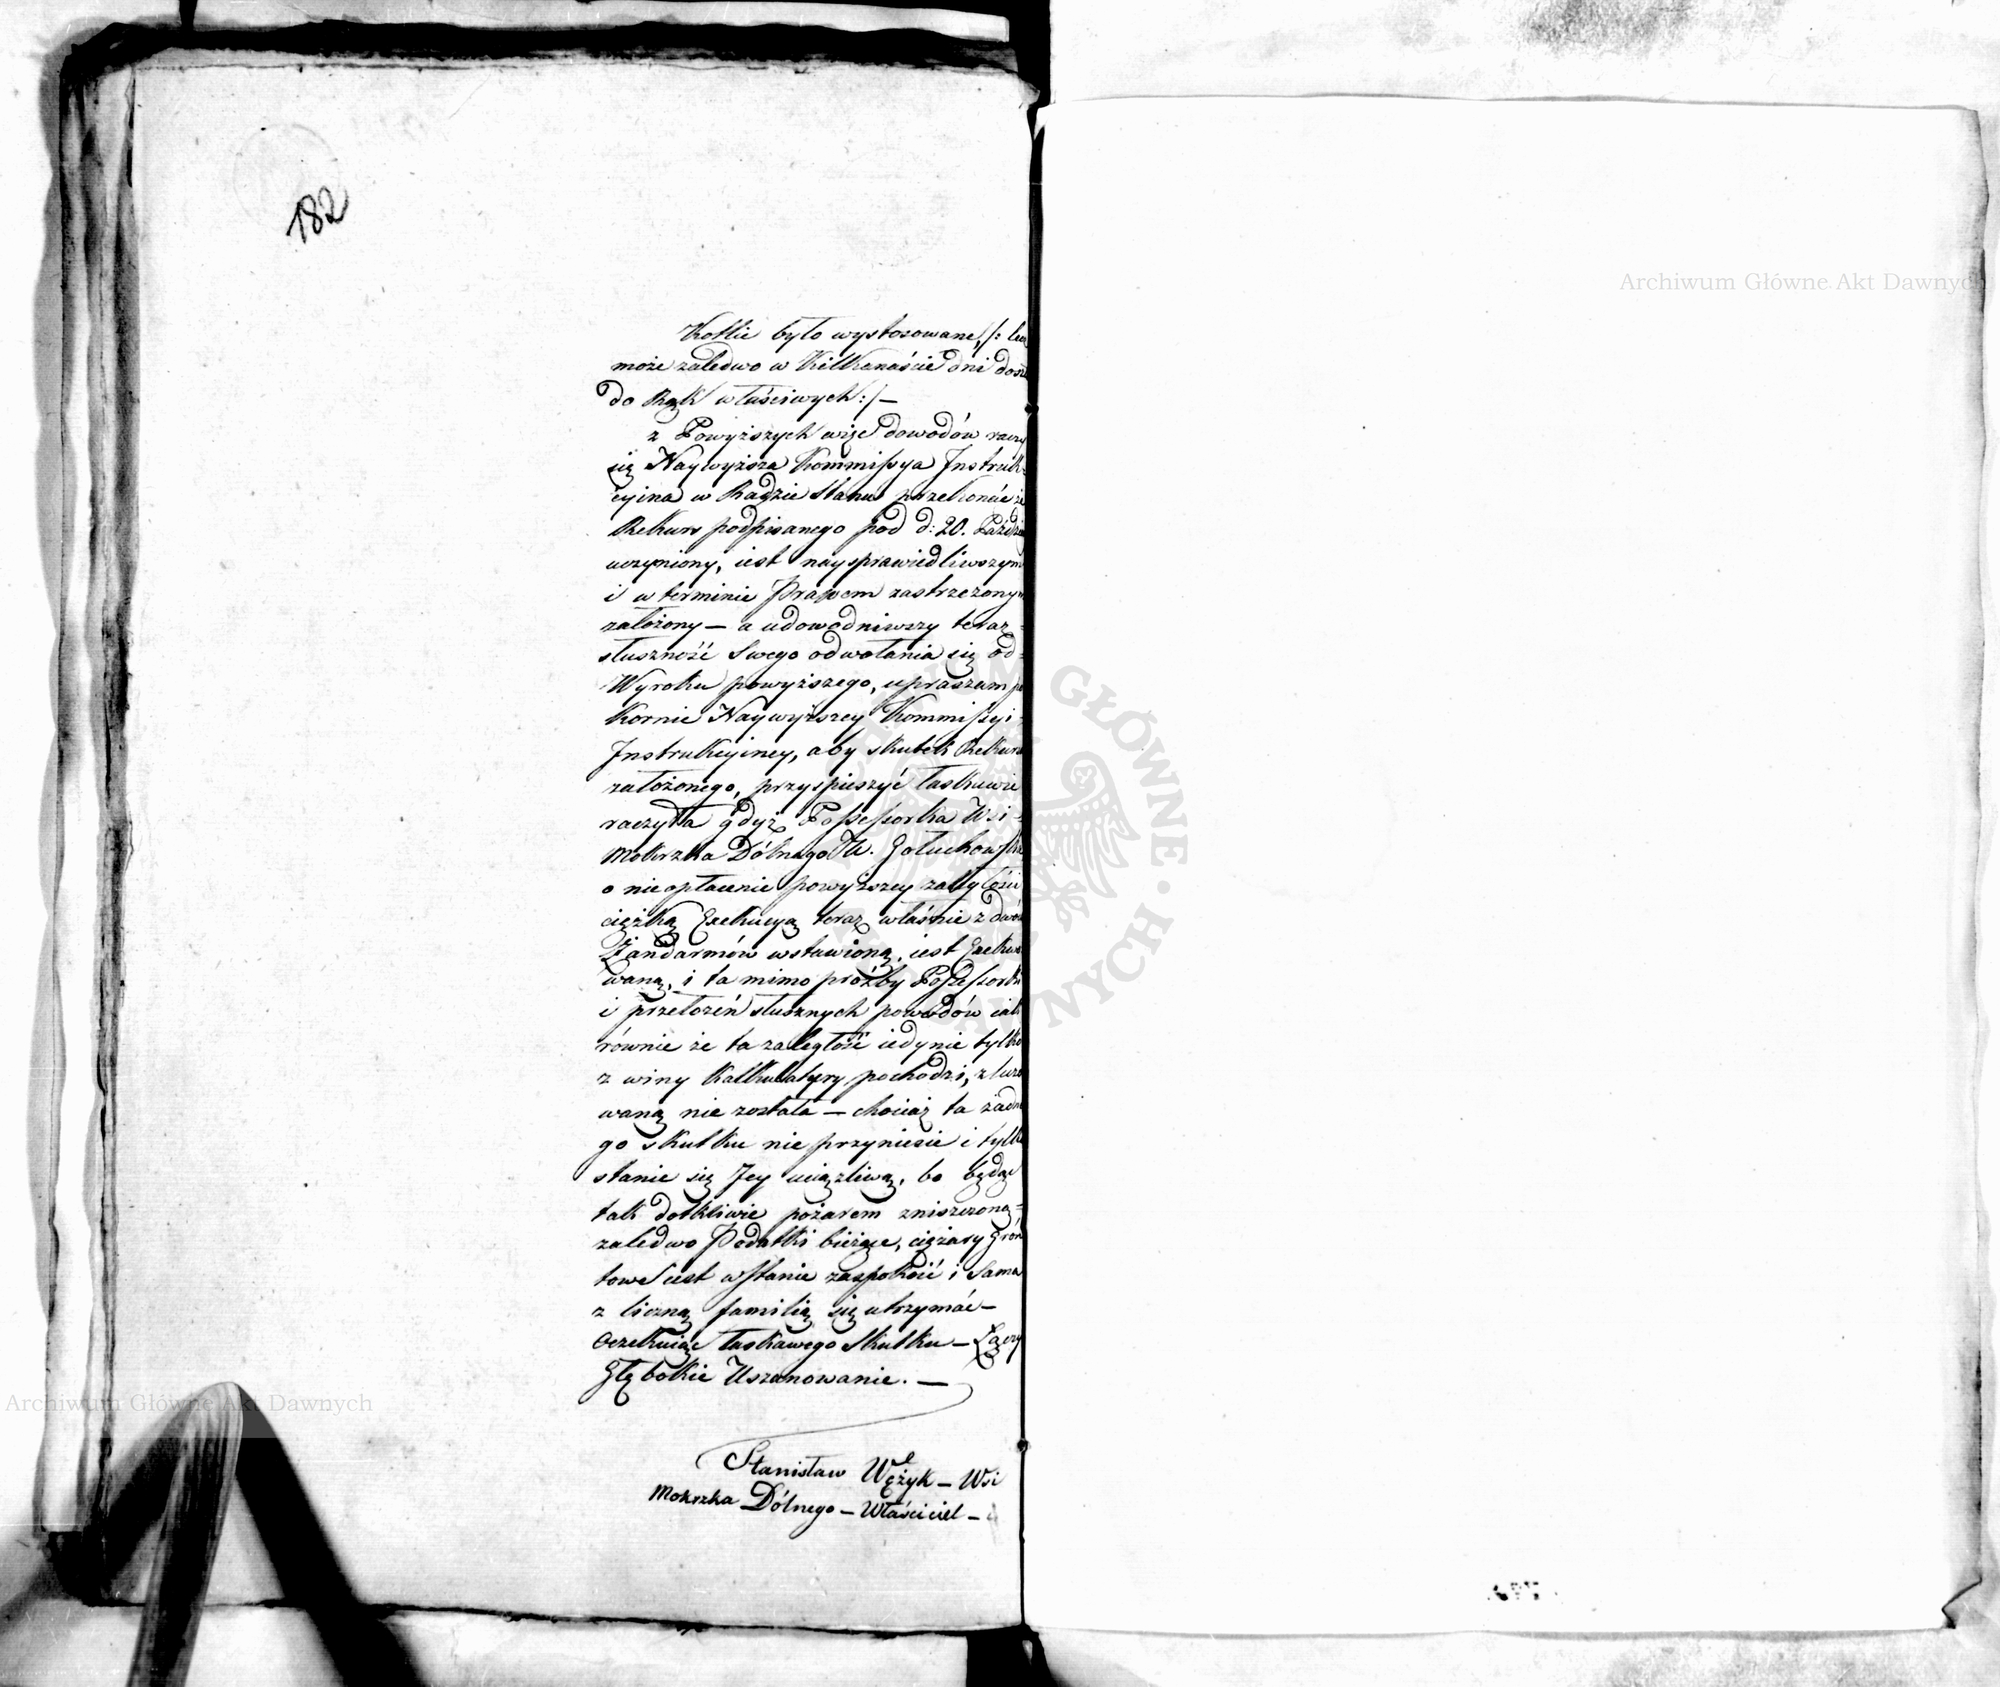 182
Kotlie było wystosowane, /: lecz
może zaledwo w Kilkanaście dni dosz
do Rąk właściwych :/ —
z Powyższych więc dowodów raczy
się Naywyższa Kommissya Instruk-
cyina w Radzie Stanu przekonać że
Rekurs podpisanego pod d: 20. Paździer
uczyniony, iest naysprawiedliwszym
i w terminie Prawem zastrzeżonym
założony — a udowodniwszy teraz
słuszność Swego odwołania się od=
Wyroku powyższego, upraszam po
kornie Naywyższey Kommissyi
Instrukcyiney, aby skutek Rekursu
założonego, przyspieszyć łaskawie
raczyła gdyż Possessorka Wsi
Mokrzka Dólnego JW. Gołuchowska
o nieopłacenie powyższey zaległości
ciężką Exekucyą teraz właśnie z dwóch
Żandarmów wstawioną, iest Exekwo
waną, i ta mimo próźby Possessorki
i przełożeń słusznych powodów iak
równie że ta zaległość iedynie tylko
z winy Kalkulatury pochodzi, zluzo
waną nie została — chociaż ta żadne
go skutku nie przyniesie i tylko
stanie się Jey uciążliwą, bo będąc
tak dotkliwie pożarem zniszczoną=
zaledwo Podatki bieżące, ciężary Grón
towe iest wstanie zaspokoić i Sama
z liczną familią się utrzymać —
Oczekuiąc łaskawego Skutku — Łączy
Głębokie Uszanowanie. —
Stanisław Wężyk — Wsi
Mokrzka Dólnego — Właściciel —
Archiwum Główne Akt Dawnych
Archiwum Główne Akt Dawnych